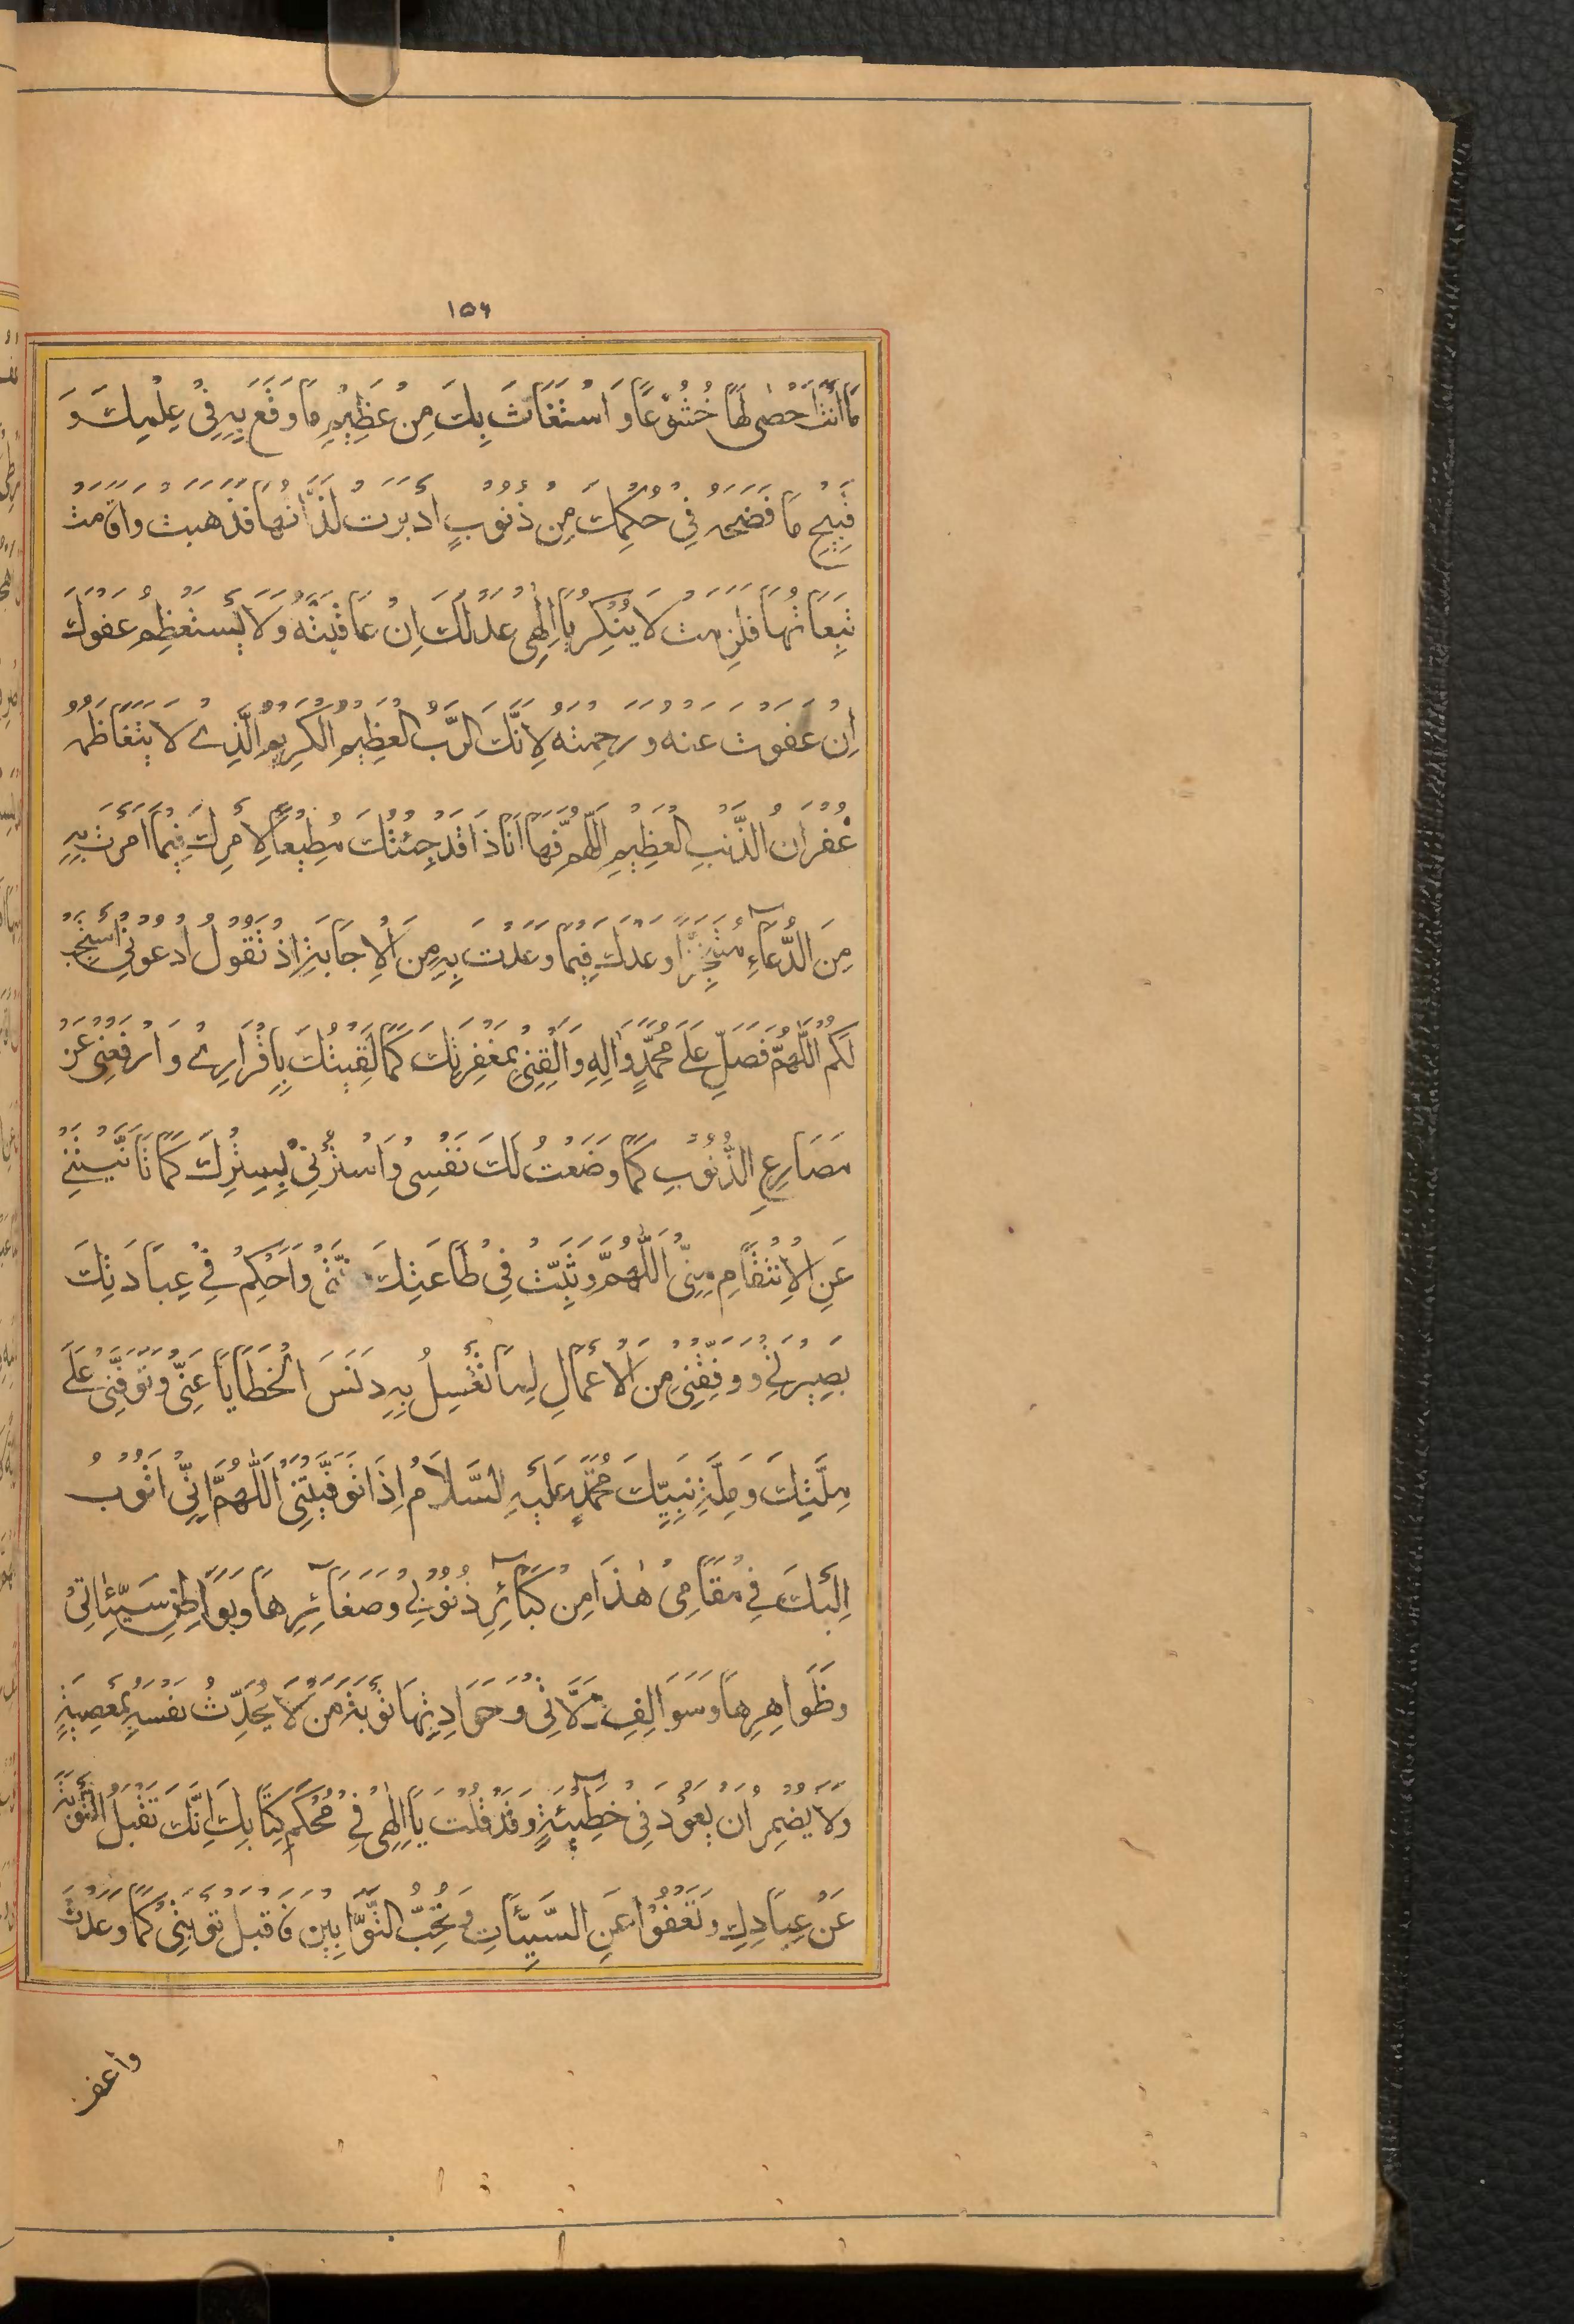 ١٥٦
مَا اَنْتَ اَحْصٰى لَهَا خُشُوْعًا وَ اسْتَغَاثَ بِكَ مِنْ عَظِيْمِ مَا وَقَعَ بِهِ فِيْ عِلْمِكَ وَ
قَبِيْحِ مَا فَضَحَهُ فِيْ حُكْمِكَ مِنْ ذُنُوْبٍ اَدْبَرَتْ لَذَّاتُهَا فَذَهَبَتْ وَاَقَامَتْ
تَبِعَاتُهَا فَلَزِمَتْ لَا يُنْكِرُ يَا اِلٰهِيْ عَدْلَكَ اِنْ عَاقَبْتَهُ وَلَا يَسْتَعْظِمُ عَفْوَكَ
اِنْ عَفَوْتَ عَنْهُ وَرَحِمْتَهُ لِاَنَّكَ الرَّبُّ الْعَظِيْمُ الْكَرِيْمُ الَّذِيْ لَا يَتَعَاظَمُهُ
غُفْرَانُ الذَّنْبِ الْعَظِيْمِ اَللّٰهُمَّ فَهَا اَنَا ذَا قَدْ جِئْتُكَ مُطِيْعًا لِاَمْرِكَ فِيْمَا اَمَرْتَ بِهِ
مِنَ الدُّعَآءِ مُتَنَجِّزًا وَعْدَكَ فِيْمَا وَعَدْتَ بِهِ مِنَ الْاِجَابَةِ اِذْ تَقُوْلُ ادْعُوْنِيْ اَسْتَجِبْ
لَكُمْ اَللّٰهُمَّ فَصَلِّ عَلٰى مُحَمَّدٍ وَاٰلِهِ وَالْقَنِيْ بِمَغْفِرَتِكَ كَمَا لَقِيْتُكَ بِاِقْرَارِيْ وَارْفَعْنِيْ عَنْ
مَصَارِعِ الذُّنُوْبِ كَمَا وَضَعْتُ لَكَ نَفْسِيْ وَاسْتُرْنِيْ بِسِتْرِكَ كَمَا تَاَنَّيْتَنِيْ
عَنِ الْاِنْتِقَامِ مِنِّيْ اَللّٰهُمَّ وَثَبِّتْ فِيْ طَاعَتِكَ نِيَّتِيْ وَاَحْكِمْ فِيْ عِبَادَتِكَ
بَصِيْرَتِيْ وَوَفِّقْنِيْ مِنَ الْاَعْمَالِ لِمَا تَغْسِلُ بِهِ دَنَسَ الْخَطَايَا عَنِّيْ وَتَوَفَّنِيْ عَلٰى
مِلَّتِكَ وَمِلَّةِ نَبِيِّكَ مُحَمَّدٍ عَلَيْهِ السَّلَامُ اِذَا تَوَفَّيْتَنِيْ اَللّٰهُمَّ اِنِّيْ اَتُوْبُ
اِلَيْكَ فِيْ مَقَامِيْ هٰذَا مِنْ كَبَآئِرِ ذُنُوْبِيْ وَصَغَآئِرِهَا وَبَوَاطِنِ سَيِّئَاتِيْ
وَظَوَاهِرِهَا وَسَوَالِفِ زَلَّاتِيْ وَحَوَادِثِهَا تَوْبَةَ مَنْ لَا يُحَدِّثُ نَفْسَهُ بِمَعْصِيَةٍ
وَلَا يُضْمِرُ اَنْ يَعُوْدَ فِيْ خَطِيْئَةٍ وَقَدْ قُلْتَ يَا اِلٰهِيْ فِيْ مُحْكَمِ كِتَابِكَ اِنَّكَ تَقْبَلُ التَّوْبَةَ
عَنْ عِبَادِكَ وَتَعْفُوْا عَنِ السَّيِّئَاتِ وَتُحِبُّ التَّوَّابِيْنَ فَاقْبَلْ تَوْبَتِيْ كَمَا وَعَدْتَ
واعف